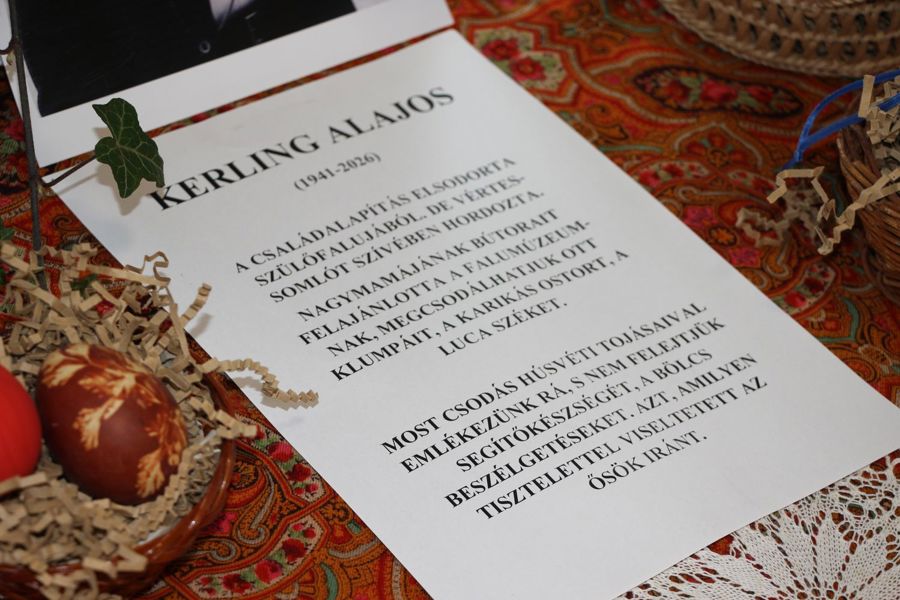 KERLING ALAJOS
(1941-2026)
A CSALÁDALAPÍTÁS ELSODORTA
SZÜLŐFALUJÁBÓL. DE VÉRTES-
SOMLÓT SZÍVÉBEN HORDOZTA.
NAGYMAMÁJÁNAK BÚTORAIT
FELAJÁNLOTTA A FALUMÚZEUM-
NAK, MEGCSODÁLHATJUK OTT
KLUMPÁIT, A KARIKÁS OSTORT, A
LUCA SZÉKET.
MOST CSODÁS HÚSVÉTI TOJÁSAIVAL
EMLÉKEZÜNK RÁ, S NEM FELEJTJÜK
SEGÍTŐKÉSZSÉGÉT, A BÖLCS
BESZÉLGETÉSEKET. AZT, AMILYEN
TISZTELETTEL VISELTETETT AZ
ŐSÖK IRÁNT.